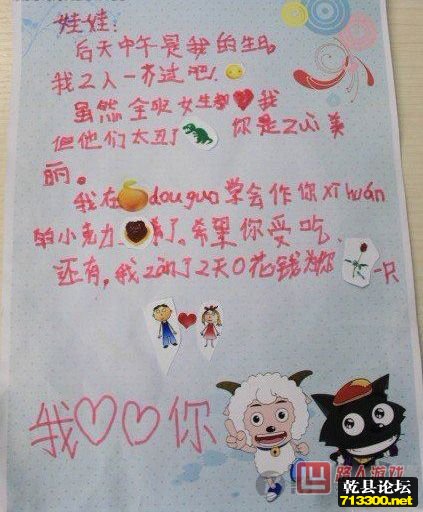 娃娃:
后天中午是我的生日,
我2人一齐过吧!
虽然全班女生都❤我
但他们太丑了 你是Zuì美
丽。
我在 dou guo 学会作你xǐ huán
的小克力 了。希望你受吃.
还有,我zǎn了2天0花钱为你 一只
我♡♡你
路人游戏
乾县论坛
713300.net